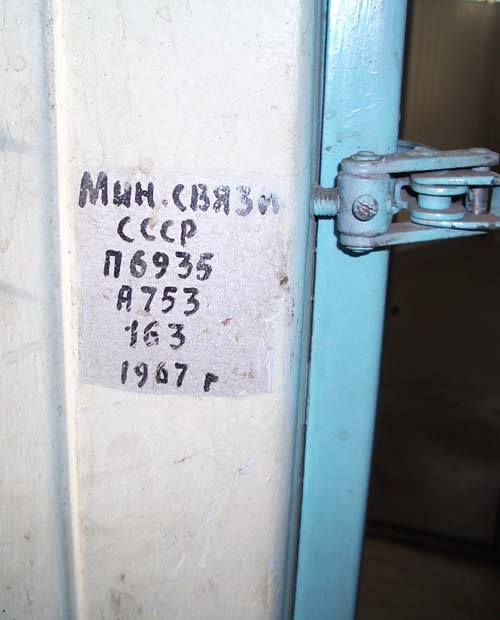 Мин. связи
СССР
П6935
А753
163
1967 г